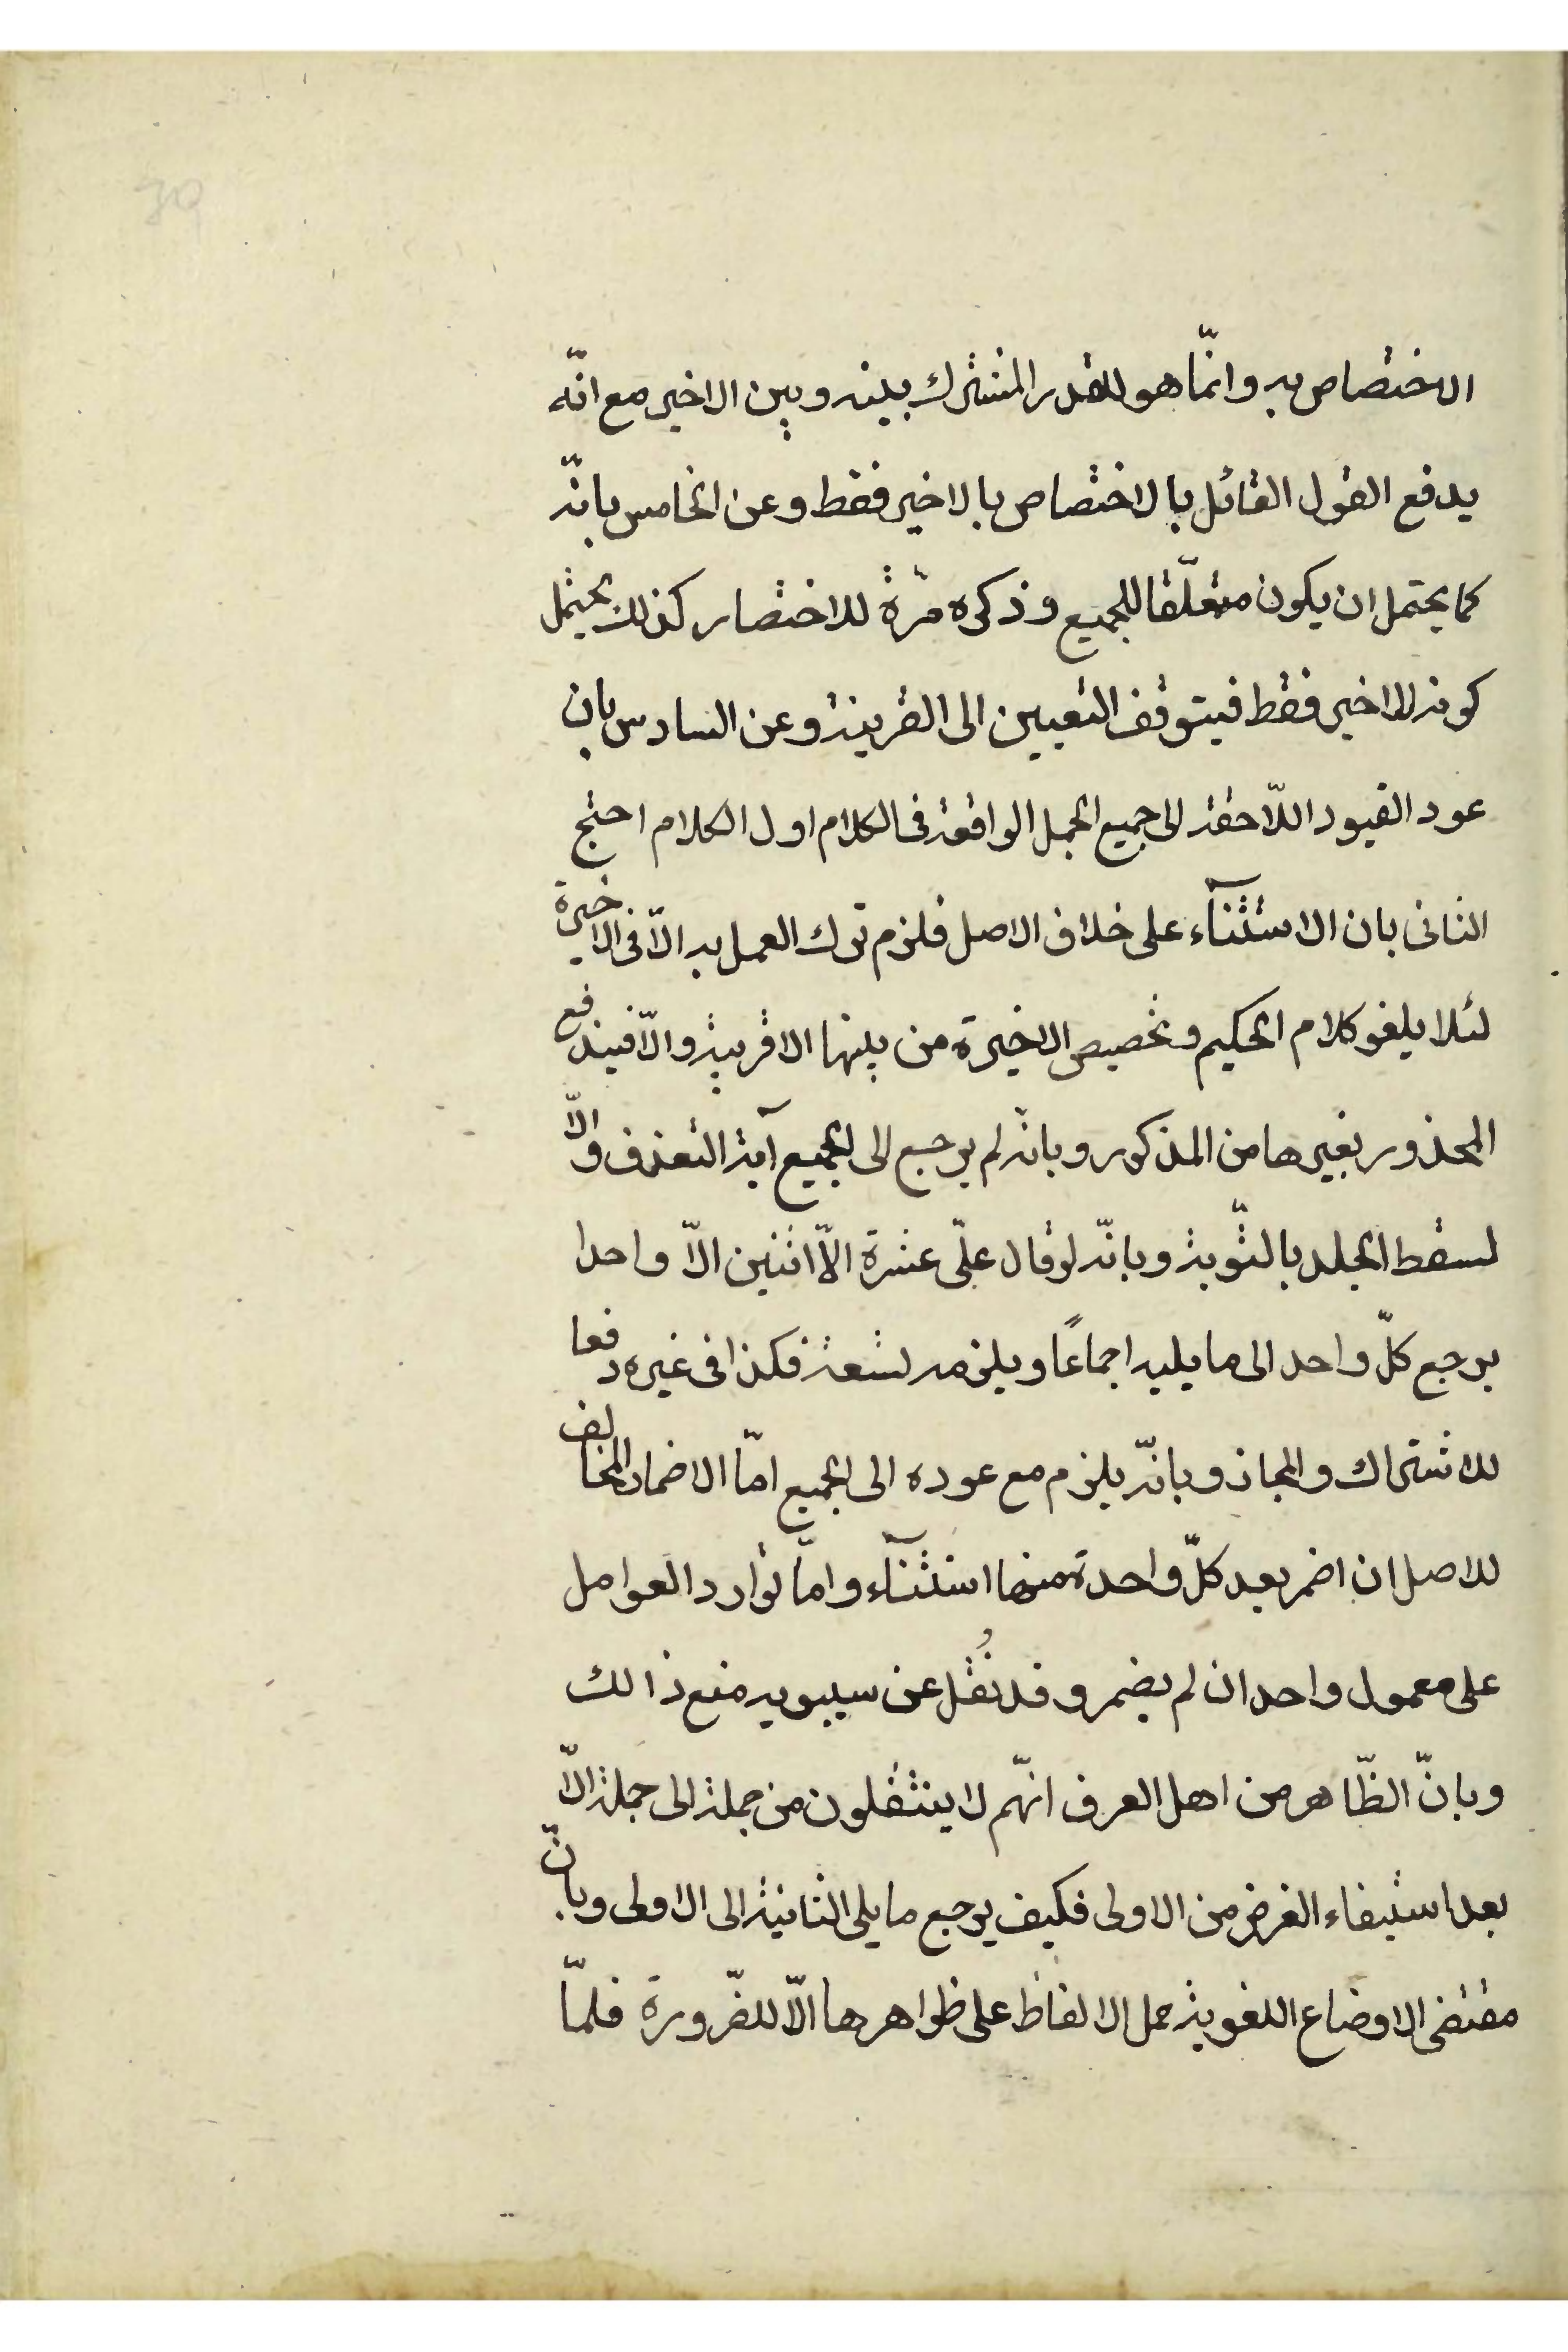 الاختصاص به وانّما هو للقدر المشترك بينه وبين الاخير مع انّه
يدفع القول القائل بالاختصاص بالاخير فقط وعن الخامس بانّه
كما يحتمل ان يكون متعلّقا للجميع وذكره مرّة للاختصار كذلك يحتمل
كونه للاخير فقط فيتوقف التعيين الى القرينة وعن السادس بان
عود القيود اللّاحقة الى جميع الجمل الواقعة فى الكلام اول الكلام احتج
الثانى بان الاستثنآء على خلاف الاصل فلزم ترك العمل به الّا فى الاخيرة
لئلا يلغو كلام الحكيم وتخصيص الاخيرة من بينها الاقربية والّا فيندفع
المحذور بغيرها من المذكور وبانه لم يرجع الى الجميع آية القذف والّا
لسقط الجلد بالتّوبة وبانّه لو قال علىّ عشرة الّا اثنين الّا واحدا
يرجع كلّ واحد الى ما يليه اجماعًا ويلزمه تسعة فكذا فى غيره دفعا
للاشتراك والمجاز وبانّه يلزم مع عوده الى الجميع امّا الاضمار المخالف
للاصل ان اضمر بعد كلّ واحدة منها استثنآء وامّا توارد العوامل
على معمول واحد ان لم يضمر وقد نُقل عن سيبويه منع ذالك
وبانّ الظّاهر من اهل العرف انّهم لا ينتقلون من جملة الى جملة الّا
بعد استيفاء الغرض من الاولى فكيف يرجع ما يلى الثانية الى الاولى وبانّ
مقتضى الاوضاع اللغوية حمل الالفاظ على ظواهرها الّا للضّرورة فلمّا